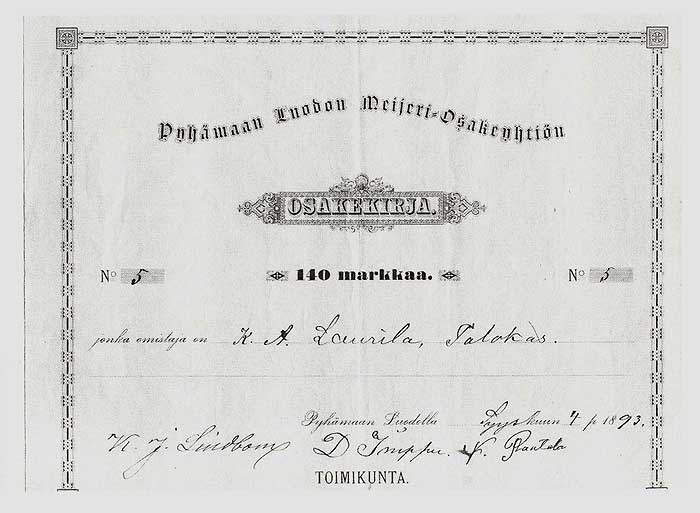 Pyhämaan Luodon Meijeri-Osakeyhtiön
OSAKEKIRJA.
No 5
140 markkaa.
No 5
jonka omistaja on K. A. Laurila, Talokas.
Pyhämaan Luodolla Syyskuun 4 p 1893.
K. J. Lindbom D
TOIMIKUNTA.